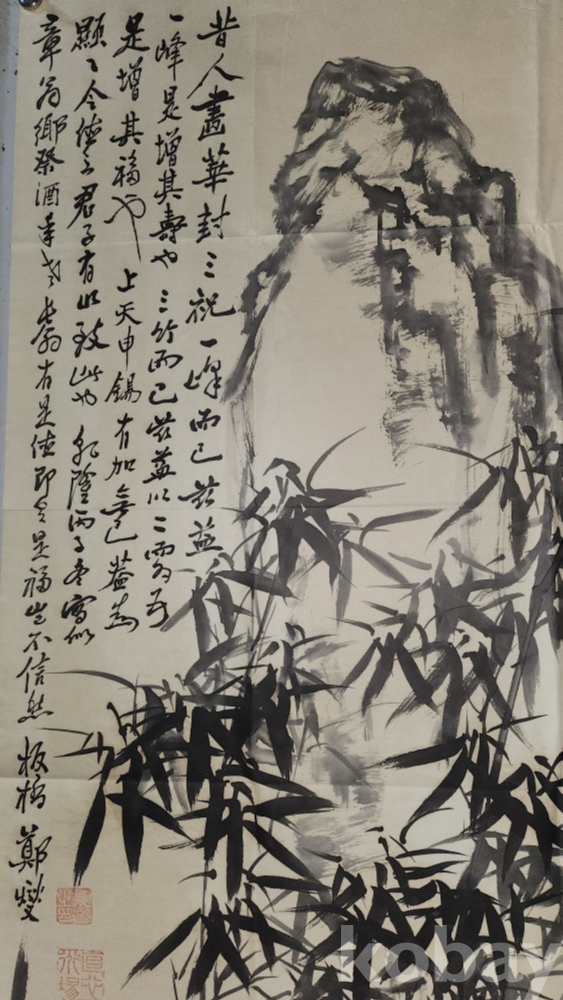 昔人畫華封三祝一峰而已茲益
一峰是增其壽也三竹而已茲益以二而為五
是增其福也上天申錫有加無已蓋為
顯〻令德之君子有以致此也乾隆丙子冬寫似
章翁鄉祭酒年老長翁有是德即有是福豈不信然板橋鄭燮
kobay